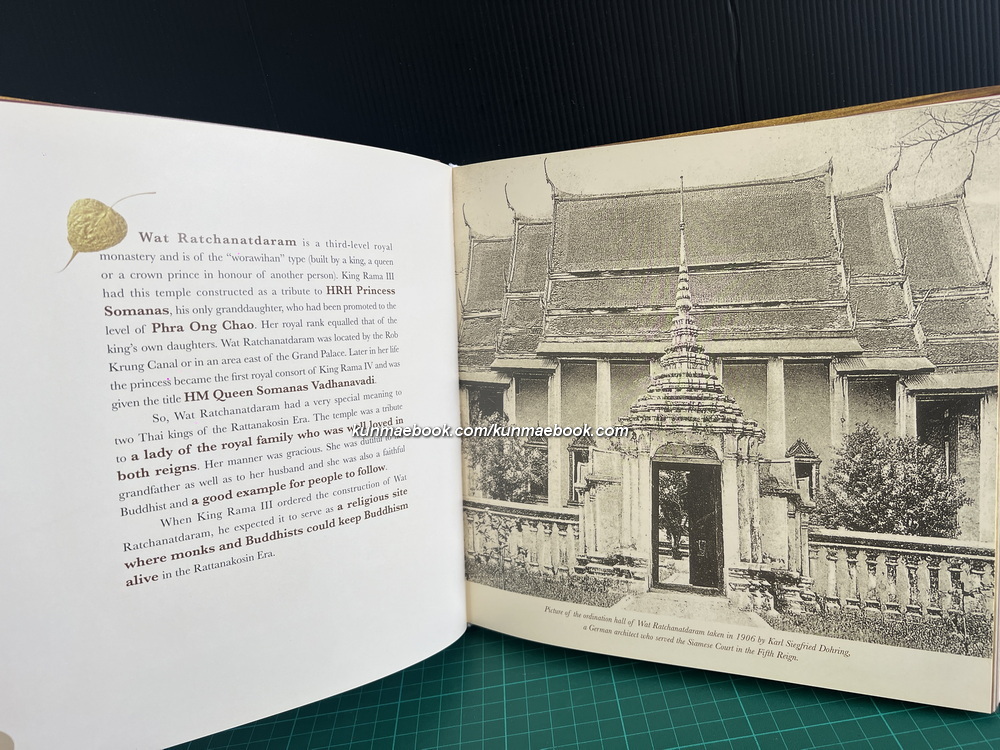 Wat Ratchanatdaram is a third-level royal
monastery and is of the “worawihan” type (built by a king, a queen
or a crown prince in honour of another person). King Rama III
had this temple constructed as a tribute to HRH Princess
Somanas, his only granddaughter, who had been promoted to the
level of Phra Ong Chao. Her royal rank equalled that of the
king’s own daughters. Wat Ratchanatdaram was located by the Rob
Krung Canal or in an area east of the Grand Palace. Later in her life
the princess became the first royal consort of King Rama IV and was
given the title HM Queen Somanas Vadhanavadi.
So, Wat Ratchanatdaram had a very special meaning to
two Thai kings of the Rattanakosin Era. The temple was a tribute
to a lady of the royal family who was well loved in
both reigns. Her manner was gracious. She was dutiful to her
grandfather as well as to her husband and she was also a faithful
Buddhist and a good example for people to follow.
When King Rama III ordered the construction of Wat
Ratchanatdaram, he expected it to serve as a religious site
where monks and Buddhists could keep Buddhism
alive in the Rattanakosin Era.
kunmaebook.com/kunmaebook.com
Picture of the ordination hall of Wat Ratchanatdaram taken in 1906 by Karl Siegfried Dohring,
a German architect who served the Siamese Court in the Fifth Reign.